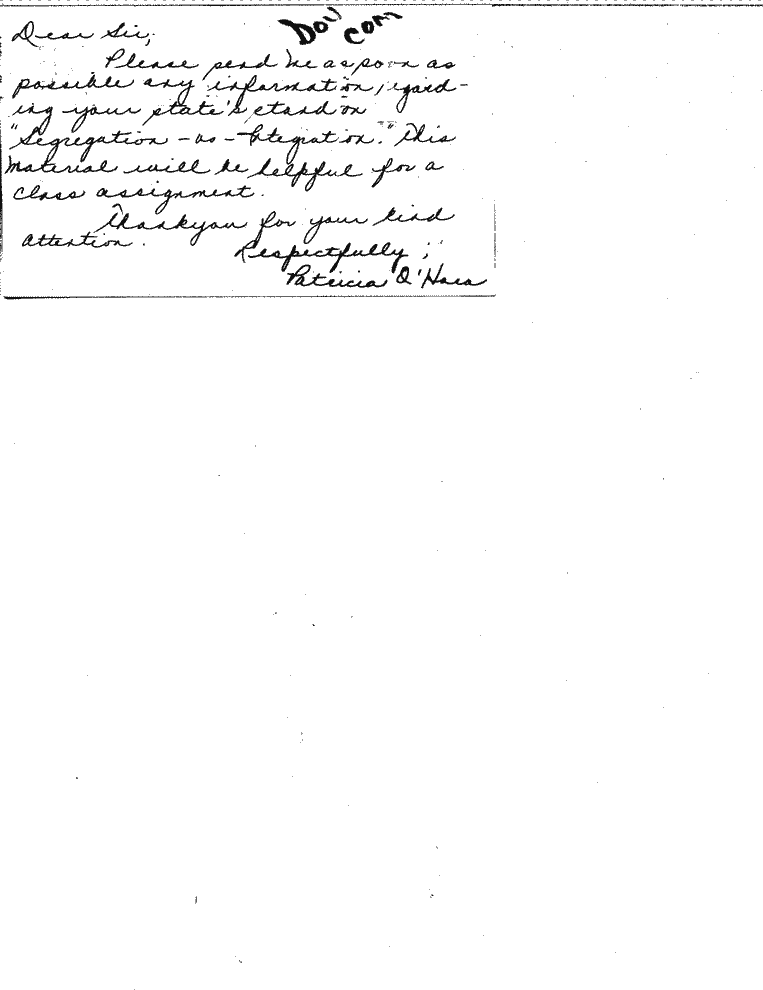 Dear Sir,
Dov
Com
Please send me as soon as
possible any information, regard-
ing your state's stand on
"Segregation - vs - Integration." This
material will be helpful for a
class assignment.
Thankyou for your kind
attention.
Respectfully,
Patricia O'Hara